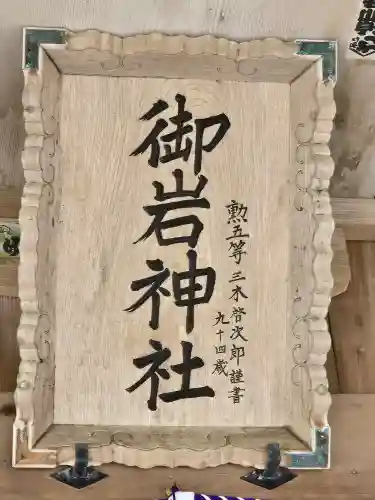 御岩神社
勲五等 三木啓次郎謹書
九十四歳